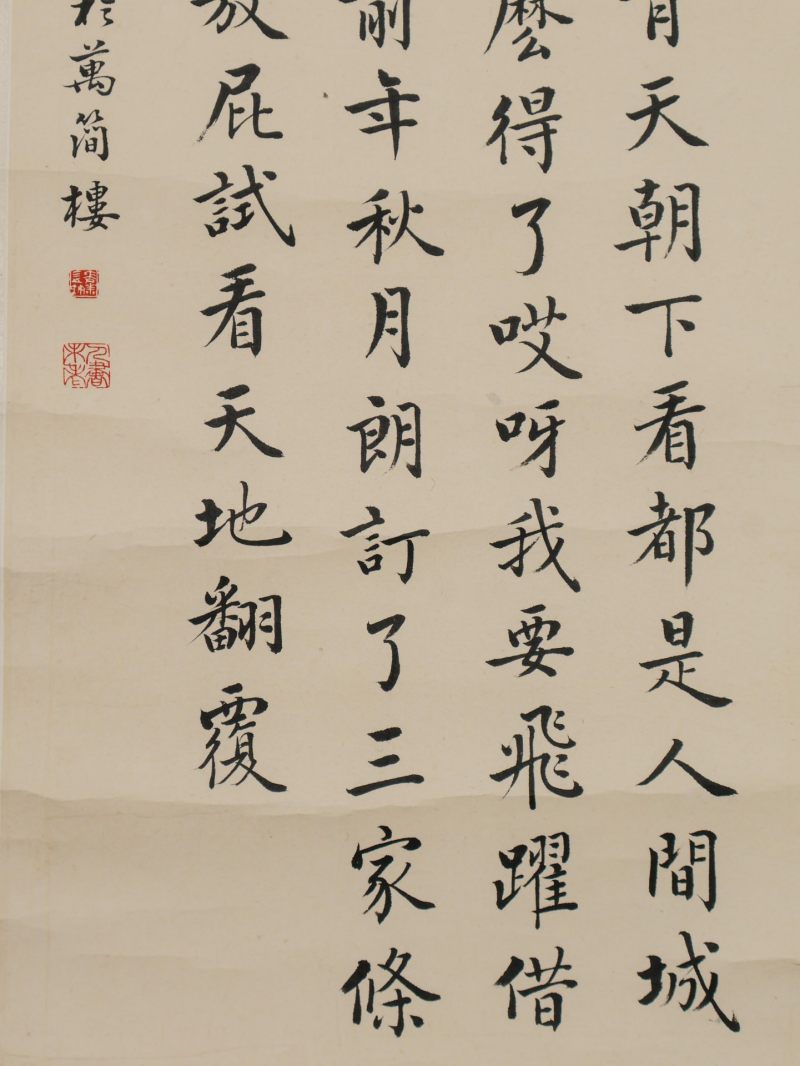 青天朝下看都是人間城
麼得了哎呀我要飛躍借
前年秋月朗訂了三家條
放屁試看天地翻覆
於萬簡樓